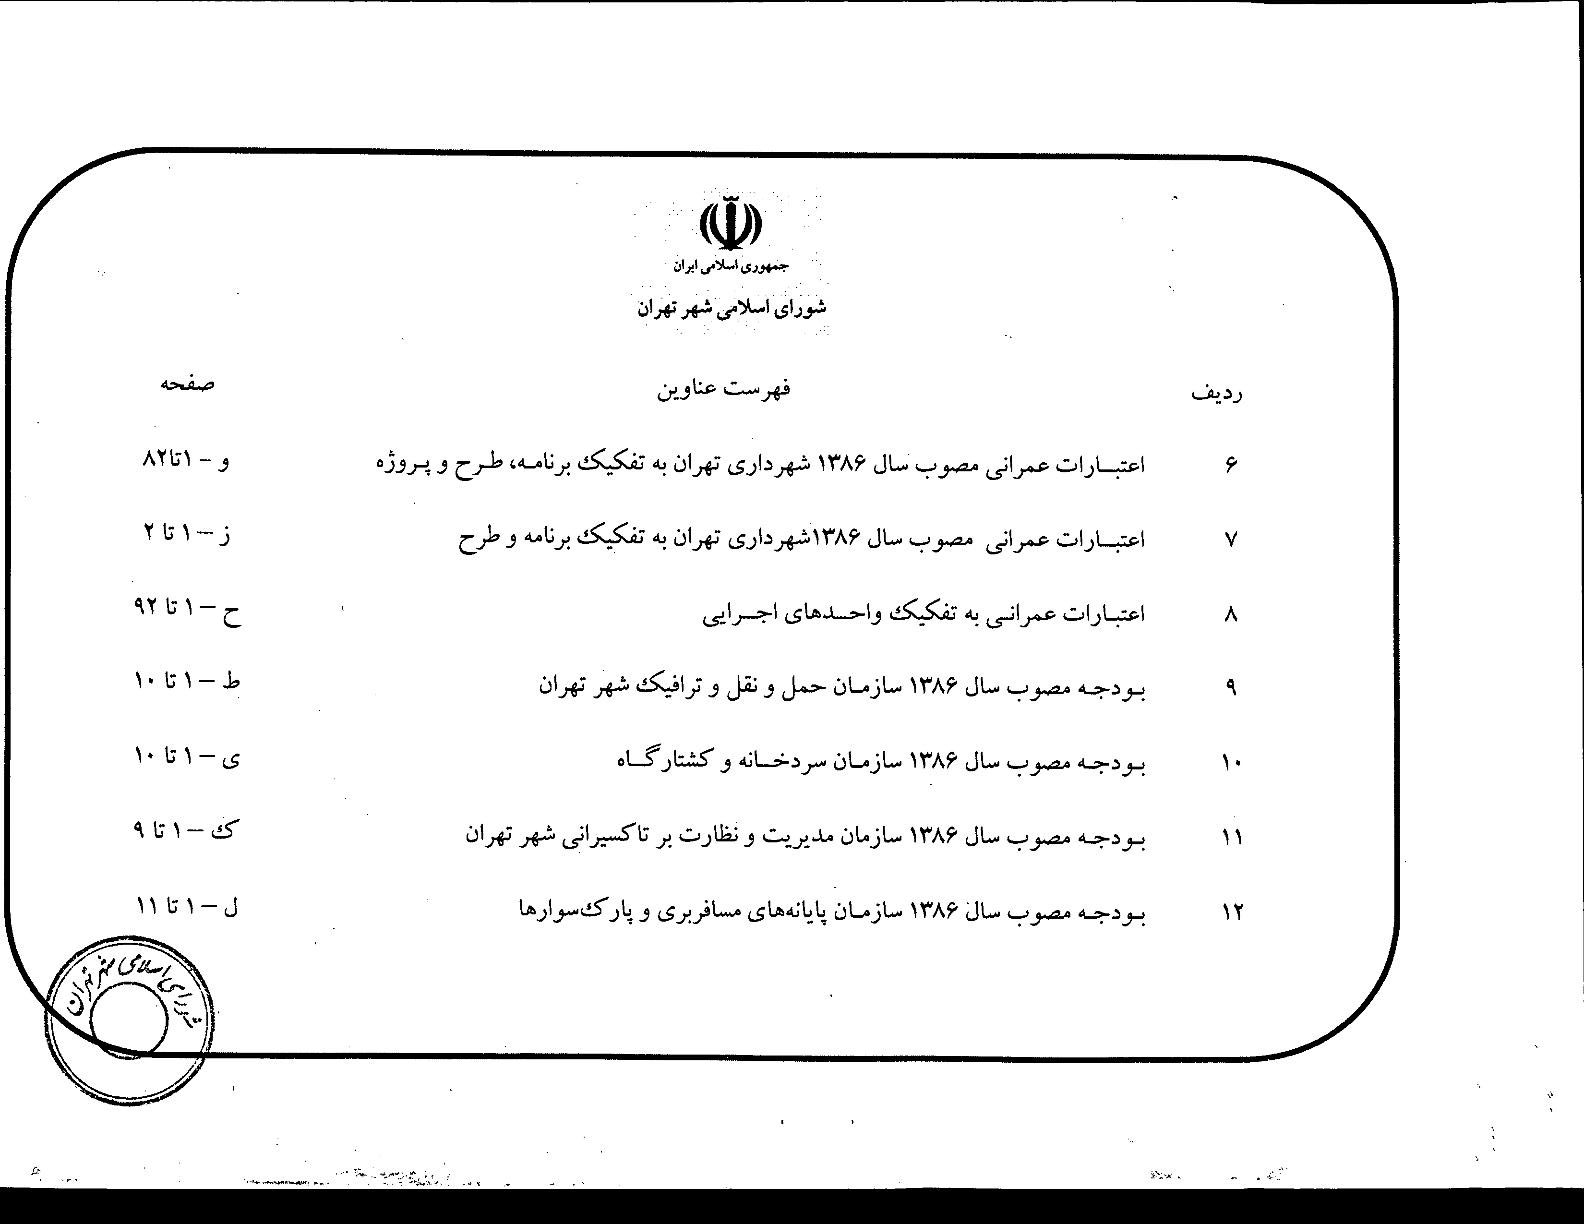 جمهوری اسلامی ایران
شورای اسلامی شهر تهران
ردیف فهرست عناوین صفحه
۶ اعتبارات عمرانی مصوب سال ۱۳۸۶ شهرداری تهران به تفکیک برنامه، طرح و پروژه و - ۱تا۸۲
۷ اعتبارات عمرانی مصوب سال ۱۳۸۶شهرداری تهران به تفکیک برنامه و طرح ز – ۱ تا ۲
۸ اعتبارات عمرانی به تفکیک واحدهای اجرایی ح – ۱ تا ۹۲
۹ بودجه مصوب سال ۱۳۸۶ سازمان حمل و نقل و ترافیک شهر تهران ط – ۱ تا ۱۰
۱۰ بودجه مصوب سال ۱۳۸۶ سازمان سردخانه و کشتارگاه ی – ۱ تا ۱۰
۱۱ بودجه مصوب سال ۱۳۸۶ سازمان مدیریت و نظارت بر تاکسیرانی شهر تهران ک – ۱ تا ۹
۱۲ بودجه مصوب سال ۱۳۸۶ سازمان پایانه‌های مسافربری و پارک‌سوارها ل – ۱ تا ۱۱
شورای اسلامی شهر تهران